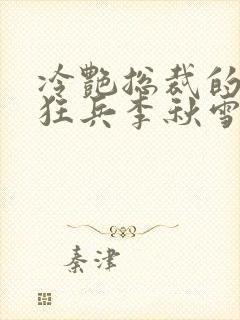 冷艳总裁的
狂兵李秋雪
秦津